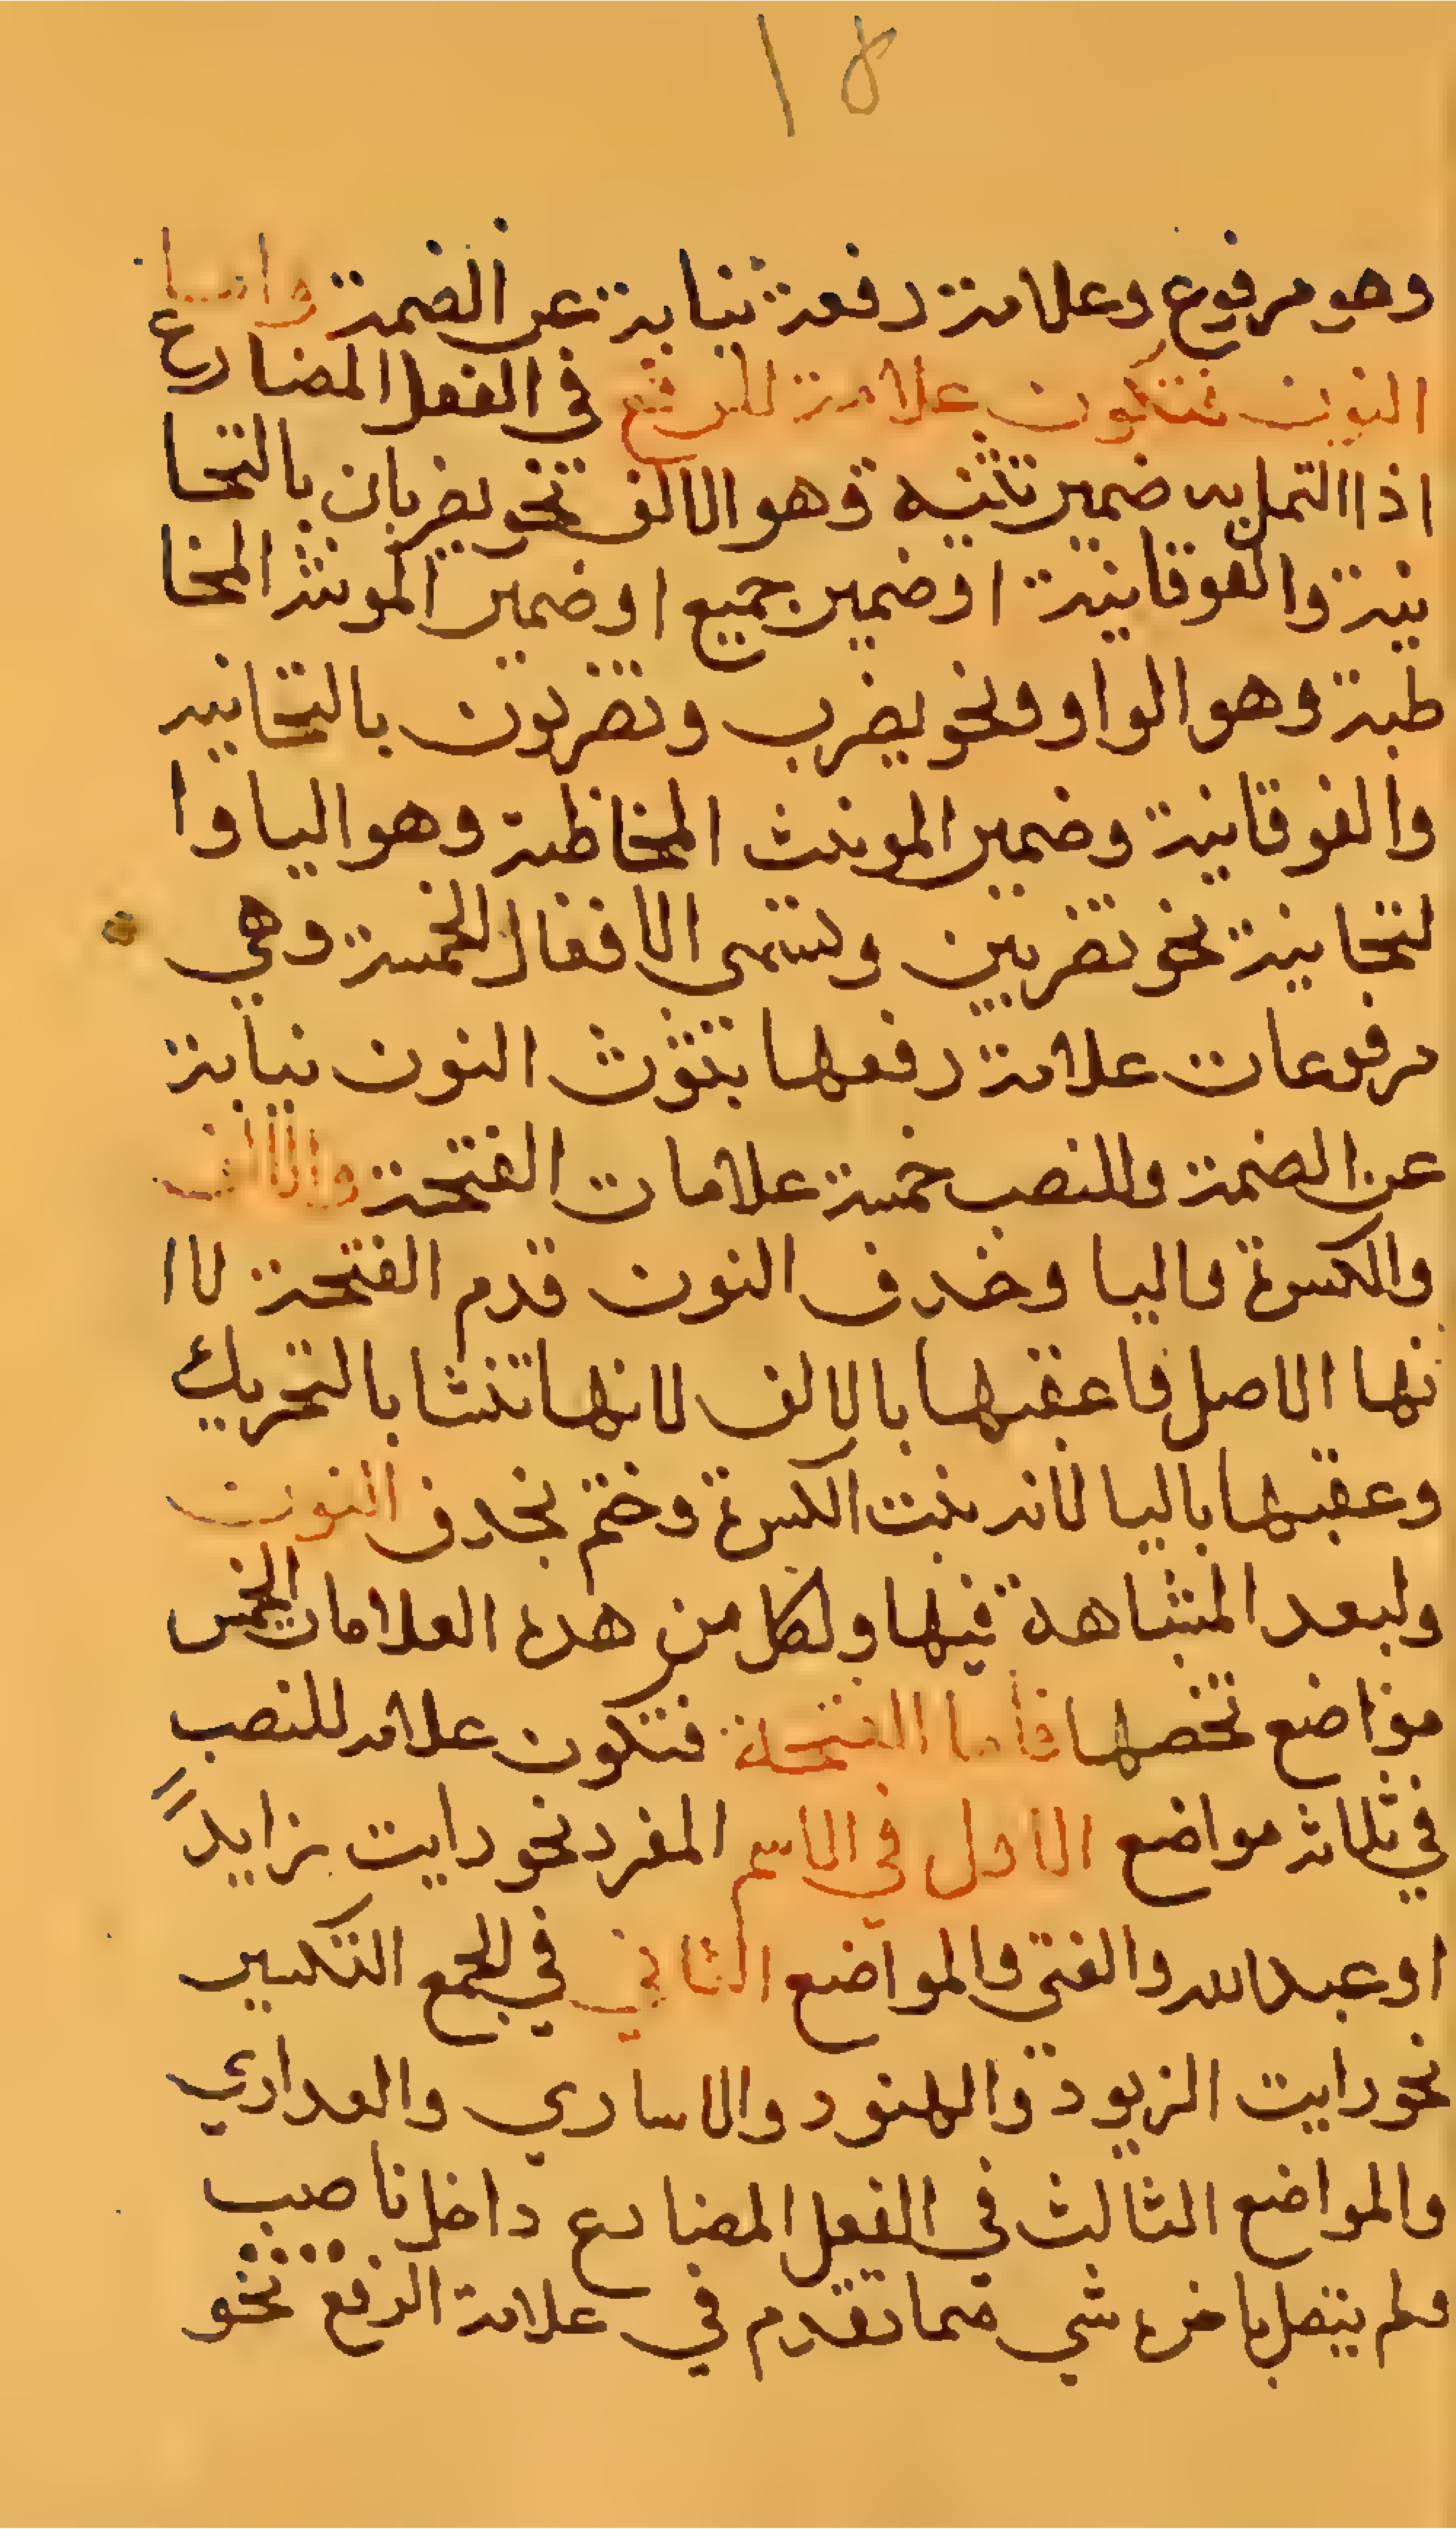 ١٥
وهو مرفوع وعلامة رفعة نيابة عن الضمة واما
النون فتكون علامة للرفع في الفعل المضارع
اذا التمل به ضمير تثنية وهو الالف نحو يضربان بالتحا
نية والفوقانية او ضمير جميع او ضمير المونث المخا
طبة وهو الواو ونحو يضرب وتضربون بالتحانيه
والفوقانية وضمير المونث المخاطبة وهو اليا وا
لتحانية نحو تضربين وتسمى الافعال الخمسة وهي
مرفوعات علامة رفعها بثوث النون نيابة
عن الضمة وللنصب خمسة علامات الفتحة والالف
والكسرة واليا وحدف النون قدم الفتحة لا ا
نها الاصل فاعقبها بالالف لانها تنشا بالتحريك
وعقبها باليا لانه بنت الكسرة وختم بحدف النون
ولبعد المشاهة فيها ولكل من هده العلامات الخمس
مواضع تخصها فأما الفتحة فتكون علامه للنصب
في ثلاثة مواضع الاول في الاسم المفرد نحو رايت زايداً
او عبدالله والفتى والمواضع الثاني في الجمع التكسير
نحو رايت الزيود والهنود والاساري والعداري
والمواضع الثالث في الفعل المضارع داخل ناصب
ولم يتصل باخره شي مما تقدم في علامة الرفع نحو